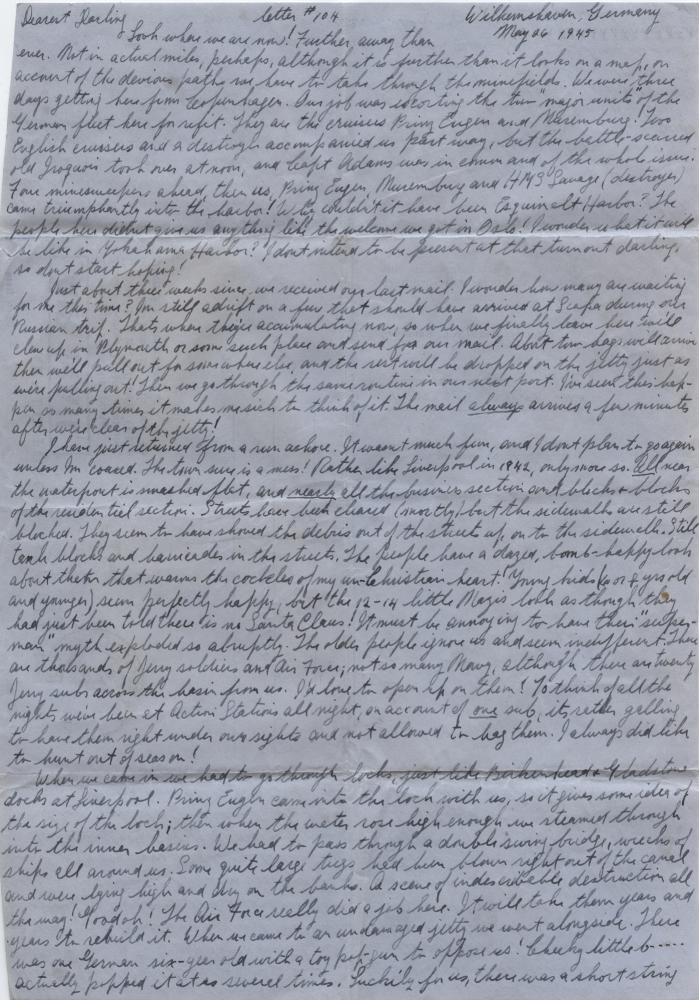 Dearest Darling letter #104 Wilhemshaven, Germany
May 26 1945
Look where we are now! Further, away than
ever. Not in actual miles, perhaps, although it is further than it looks on a map, on
account of the devious paths we have to take through the minefields. We were three
days getting here from Copenhagen. Our job was escorting the two "major units" of the
German fleet here for refit. They are the cruisers Prinz Eugen and Nuremburg! Two
English cruisers and a destroyer accompanied us part way, but the battle-scarred
old Iroquois took over at noon, and Capt Adams was in command of the whole issue.
Four minesweepers ahead, then us, Prinz Eugen, Nuremburg and HMS Savage (destroyer)
came triumphantly into the harbor! Why couldn't it have been Esquimalt Harbor? The
people here didn't give us anything like the welcome we got in Oslo! I wonder what it will
be like in Yokahama Harbor? I dont intend to be present at that turnout darling,
so dont start hoping!
Just about three weeks since we received our last mail. I wonder how many are waiting
for me this time? I'm still adrift on a few that should have arrived at Scapa during our
Russian trip. Thats where they're accumulating now, so when we finally leave here we'll
clew up in Plymouth or some such place and send for our mail. About two bags will arrive
then we'll pull out for somewhere else, and the rest will be dropped on the jetty just as
we're pulling out! Then we go through the same routine in our next port. I've seen this hap-
pen so many times it makes me sick to think of it. The mail always arrives a few minutes
after we're clear of the jetty!
I have just returned from a run ashore. It wasn't much fun, and I dont plan to go again
unless I'm coaxed. The town sure is a mess! Rather like Liverpool in 1942, only more so. All near
the waterfront is smashed flat, and nearly all the business section and blocks & blocks
of the residential section. Streets have been cleared (mostly) but the sidewalks are still
blocked. They seem to have shoved the debris out of the streets up, on to the sidewalk. Still
tank blocks and barricades in the streets. The people have a dazed, bomb-happy look
about them that warms the cockles of my un-Christian heart! Young kids (6 or 8 yrs old
and younger) seem perfectly happy, but the 12-14 little Nazis look as though they
had just been told there is no Santa Claus! It must be annoying to have their "super-
man" myth exploded so abruptly. The older people ignore us and seem indifferent. There
are thousands of Jerry soldiers and Air Force; not so many Navy, although there are twenty
Jerry subs across the basin from us. I'd love to open up on them! To think of all the
nights we've been at Action Stations all night, on account of one sub, its rather galling
to have them right under our sights and not allowed to bag them. I always did like
to hunt out of season!
When we came in we had to go through locks, just like Birkenhead & Gladstone
docks at Liverpool. Prinz Eugen came into the lock with us, so it gives some idea of
the size of the lock; then when the water rose high enough we steamed through
into the inner basins. We had to pass through a double swing bridge, wrecks of
ships all around us. Some quite large tugs had been blown right out of the canal
and were lying high and dry on the banks. A scene of indescribable destruction all
the way! Hoo doh! The Air Force really did a job here. It will take them years and
years to rebuild it. When we came to an undamaged jetty we went alongside. There
was one German six-year old with a toy pop-gun to oppose us! Cheeky little b-----
actually popped it at us several times. Luckily for us, there was a short string